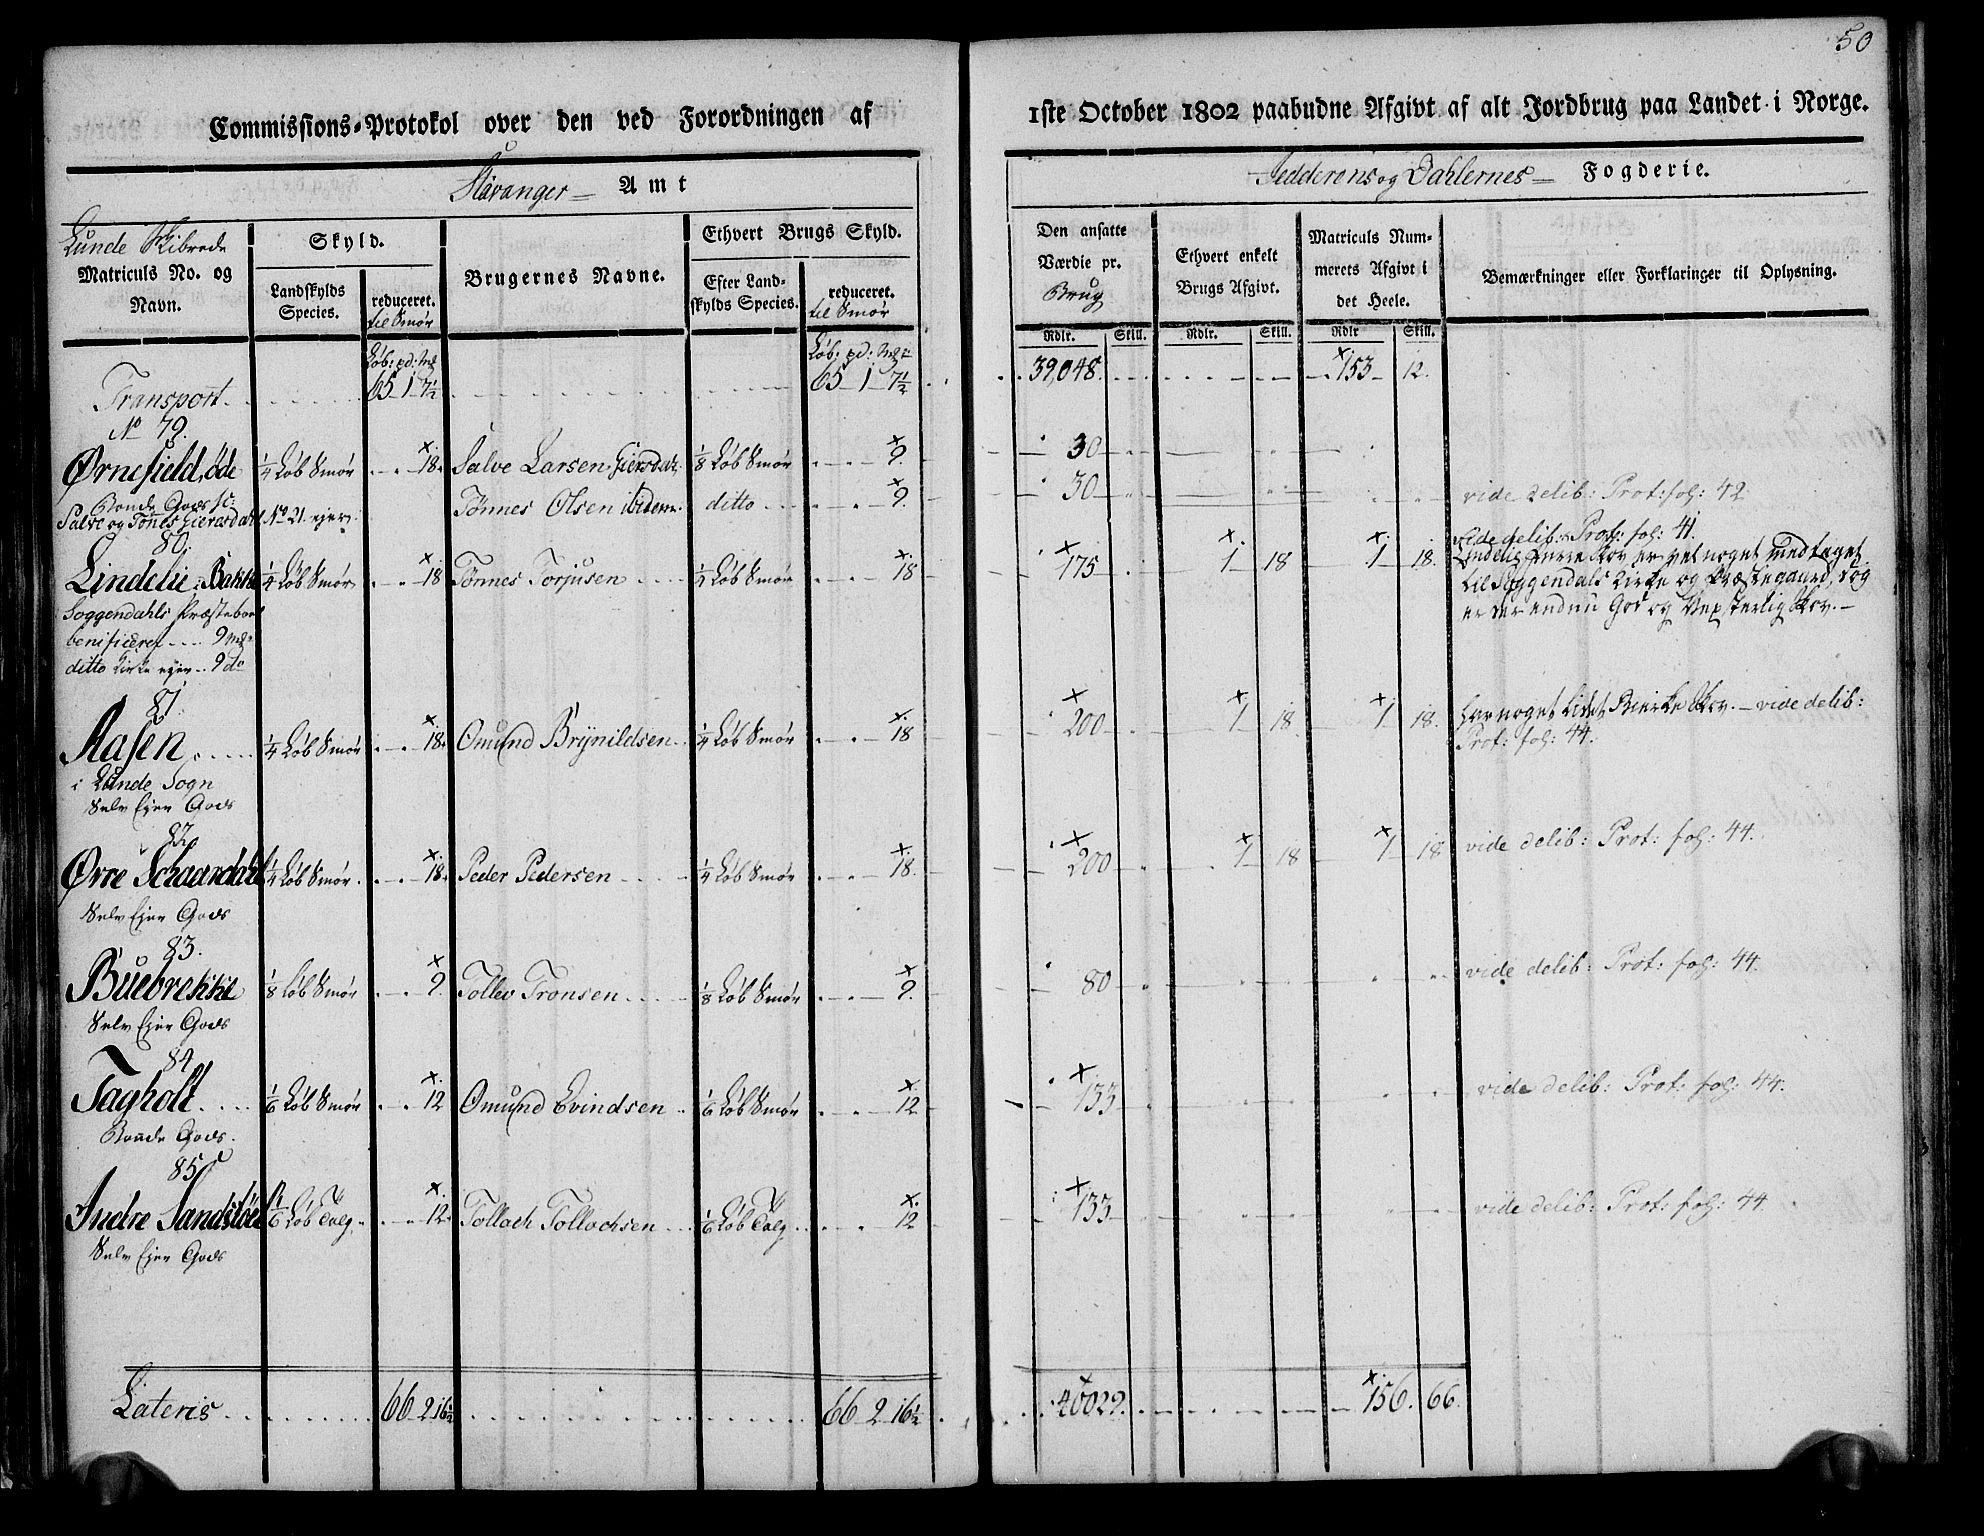 50
Commissions-Protokol over den ved Forordningen af 1ste October 1802 paabudne Afgivt af alt Jordbrug paa Landet i Norge.
Stavanger Amt
Jedderens og Dahlernes Fogderie.
Lunde Skibrede
Matriculs No. og Navn.
Skyld.
Landskylds Species.
reduceret. til Smør
Brugernes Navne.
Ethvert Brugs Skyld.
Efter Landskylds Species.
reduceret. til Smør
Den ansatte Værdie pr. Brug
Rdlr. Skill.
Ethvert enkelt Brugs Afgivt.
Rdlr. Skill.
Matriculs Nummerets Afgivt i det Heele.
Rdlr Skill.
Bemærkninger eller Forklaringer til Oplysning.
Løb: pd: Mk Løb: pd: Mk
Transport 65 1 7½ 65 1 7½ 39,048 153 12.
No 79.
Ørnefield, øde ¼ Løb Smør 18. Salve Larsen Giersdal ⅛ Løb Smør 9. 30
Bonde Gods Tønnes Olsen ibidem ditto 9. 30 vide delib: Prot: fol: 42
Salve og Tønes Giersdahl No 21. ejer.
80. vide delib: Prot: fol: 41.
Lindelie: Bakke ¼ Løb Smør 18 Tønnes Torjusen ¼ Løb Smør 18 175 1 18 1 18. Lindelie Furre Skov er vel noget medtaget
til Soggendals Kirke og Præstegaard, dog
er der endnu God og Vexsterlig Skov.
Soggendahls Præstebol
benificeret 9 Mk
ditto Kirke ejer 9 do
81.
Aasen ¼ Løb Smør 18. Omund Brynildsen ¼ Løb Smør 18 200 1 18. 1 18. har noget lidet Birke Skov. vide delib:
Prot: fol: 44.
i Lunde Sogn
Selv Ejer Gods
82
Øvre Schaardahl ¼ Løb Smør 18. Peder Pedersen ¼ Løb Smør 18. 200 1 18 1 18 vide delib: Prot: fol: 44.
Selv Ejer Gods
83.
Buebrekke ⅛ Løb Smør 9. Tollev Tronsen ⅛ Løb Smør 9. 80 vide delib: Prot: fol: 44.
Selv Ejer Gods
84
Tagholt ⅙ Løb Smør 12 Omund Evindsen ⅙ Løb Smør 12 133 vide delib: Prot: fol: 44.
Bonde Gods.
85
Indre Sandsløed ⅙ Løb Talg 12. Tollach Tollachsen ⅙ Løb Talg 12 133 vide delib: Prot: fol: 44
Selv Ejer Gods
Lateris 66 2 16½ 66 2 16½ 40029. 156. 66.